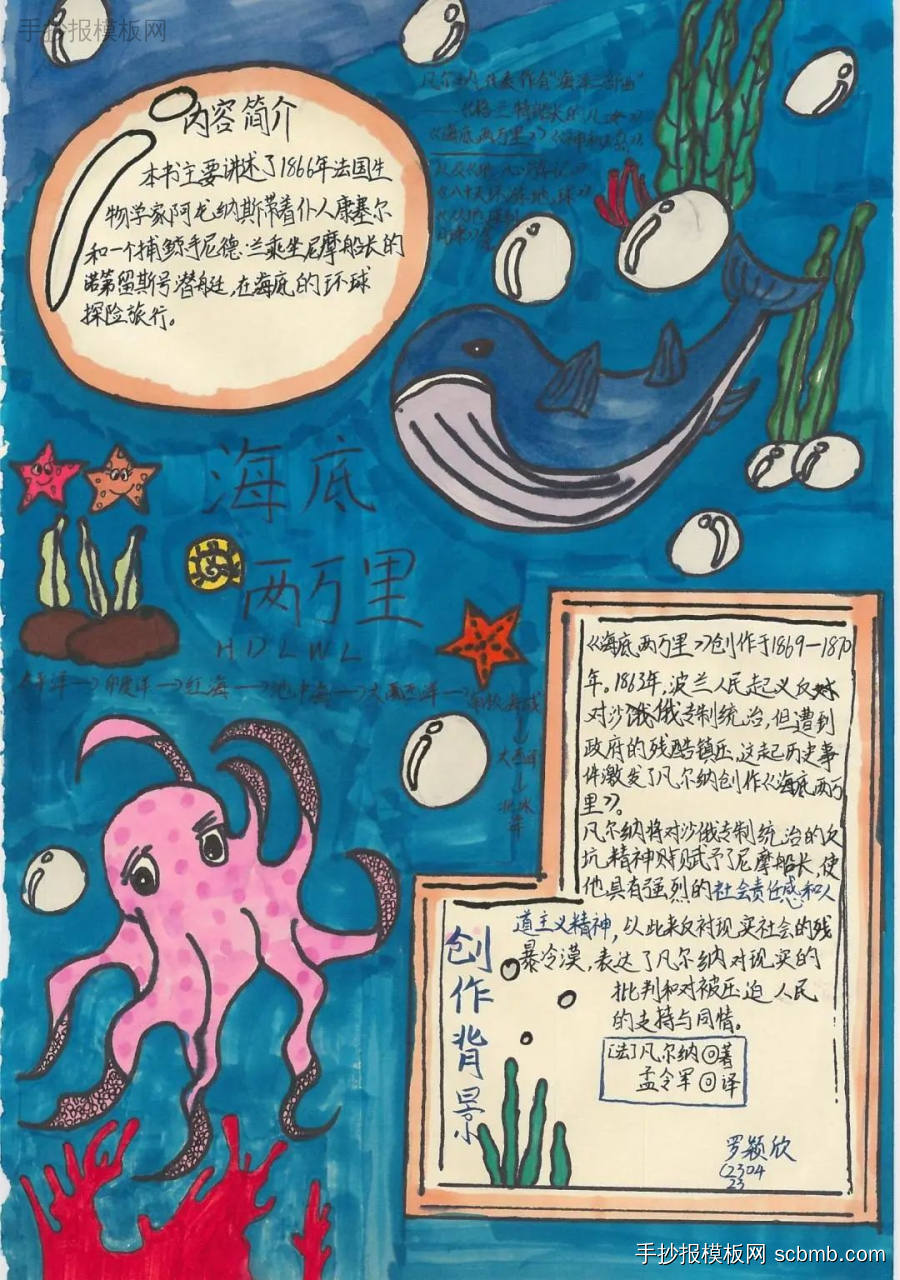 手抄报模板网
内容简介
本书主要讲述了1866年法国生
物学家阿龙纳斯带着仆人康塞尔
和一个捕鲸手尼德·兰乘坐尼摩船长的
诺第留斯号潜艇,在海底的环球
探险旅行。
凡尔纳代表作有"海洋三部曲"
《海底两万里》
《八十天环游地球》
海底
两万里
HDLWL
太平洋→印度洋→红海→地中海→大西洋→南极海域
大西洋
↓
北冰
洋
《海底两万里》创作于1869—1870
年。1863年,波兰人民起义反
对沙俄专制统治,但遭到
政府的残酷镇压,这起历史事
件激发了凡尔纳创作《海底两万
里》。
凡尔纳将对沙俄专制统治的反
抗精神赋予尼摩船长,使
他具有强烈的社会责任感和人
道主义精神,以此来反衬现实社会的残
暴冷漠,表达了凡尔纳对现实的
批判和对被压迫人民
的支持与同情。
创作背景
[法]凡尔纳◎著
孟令军◎译
罗颖欣
C2304
23
手抄报模板网 scbmb.com